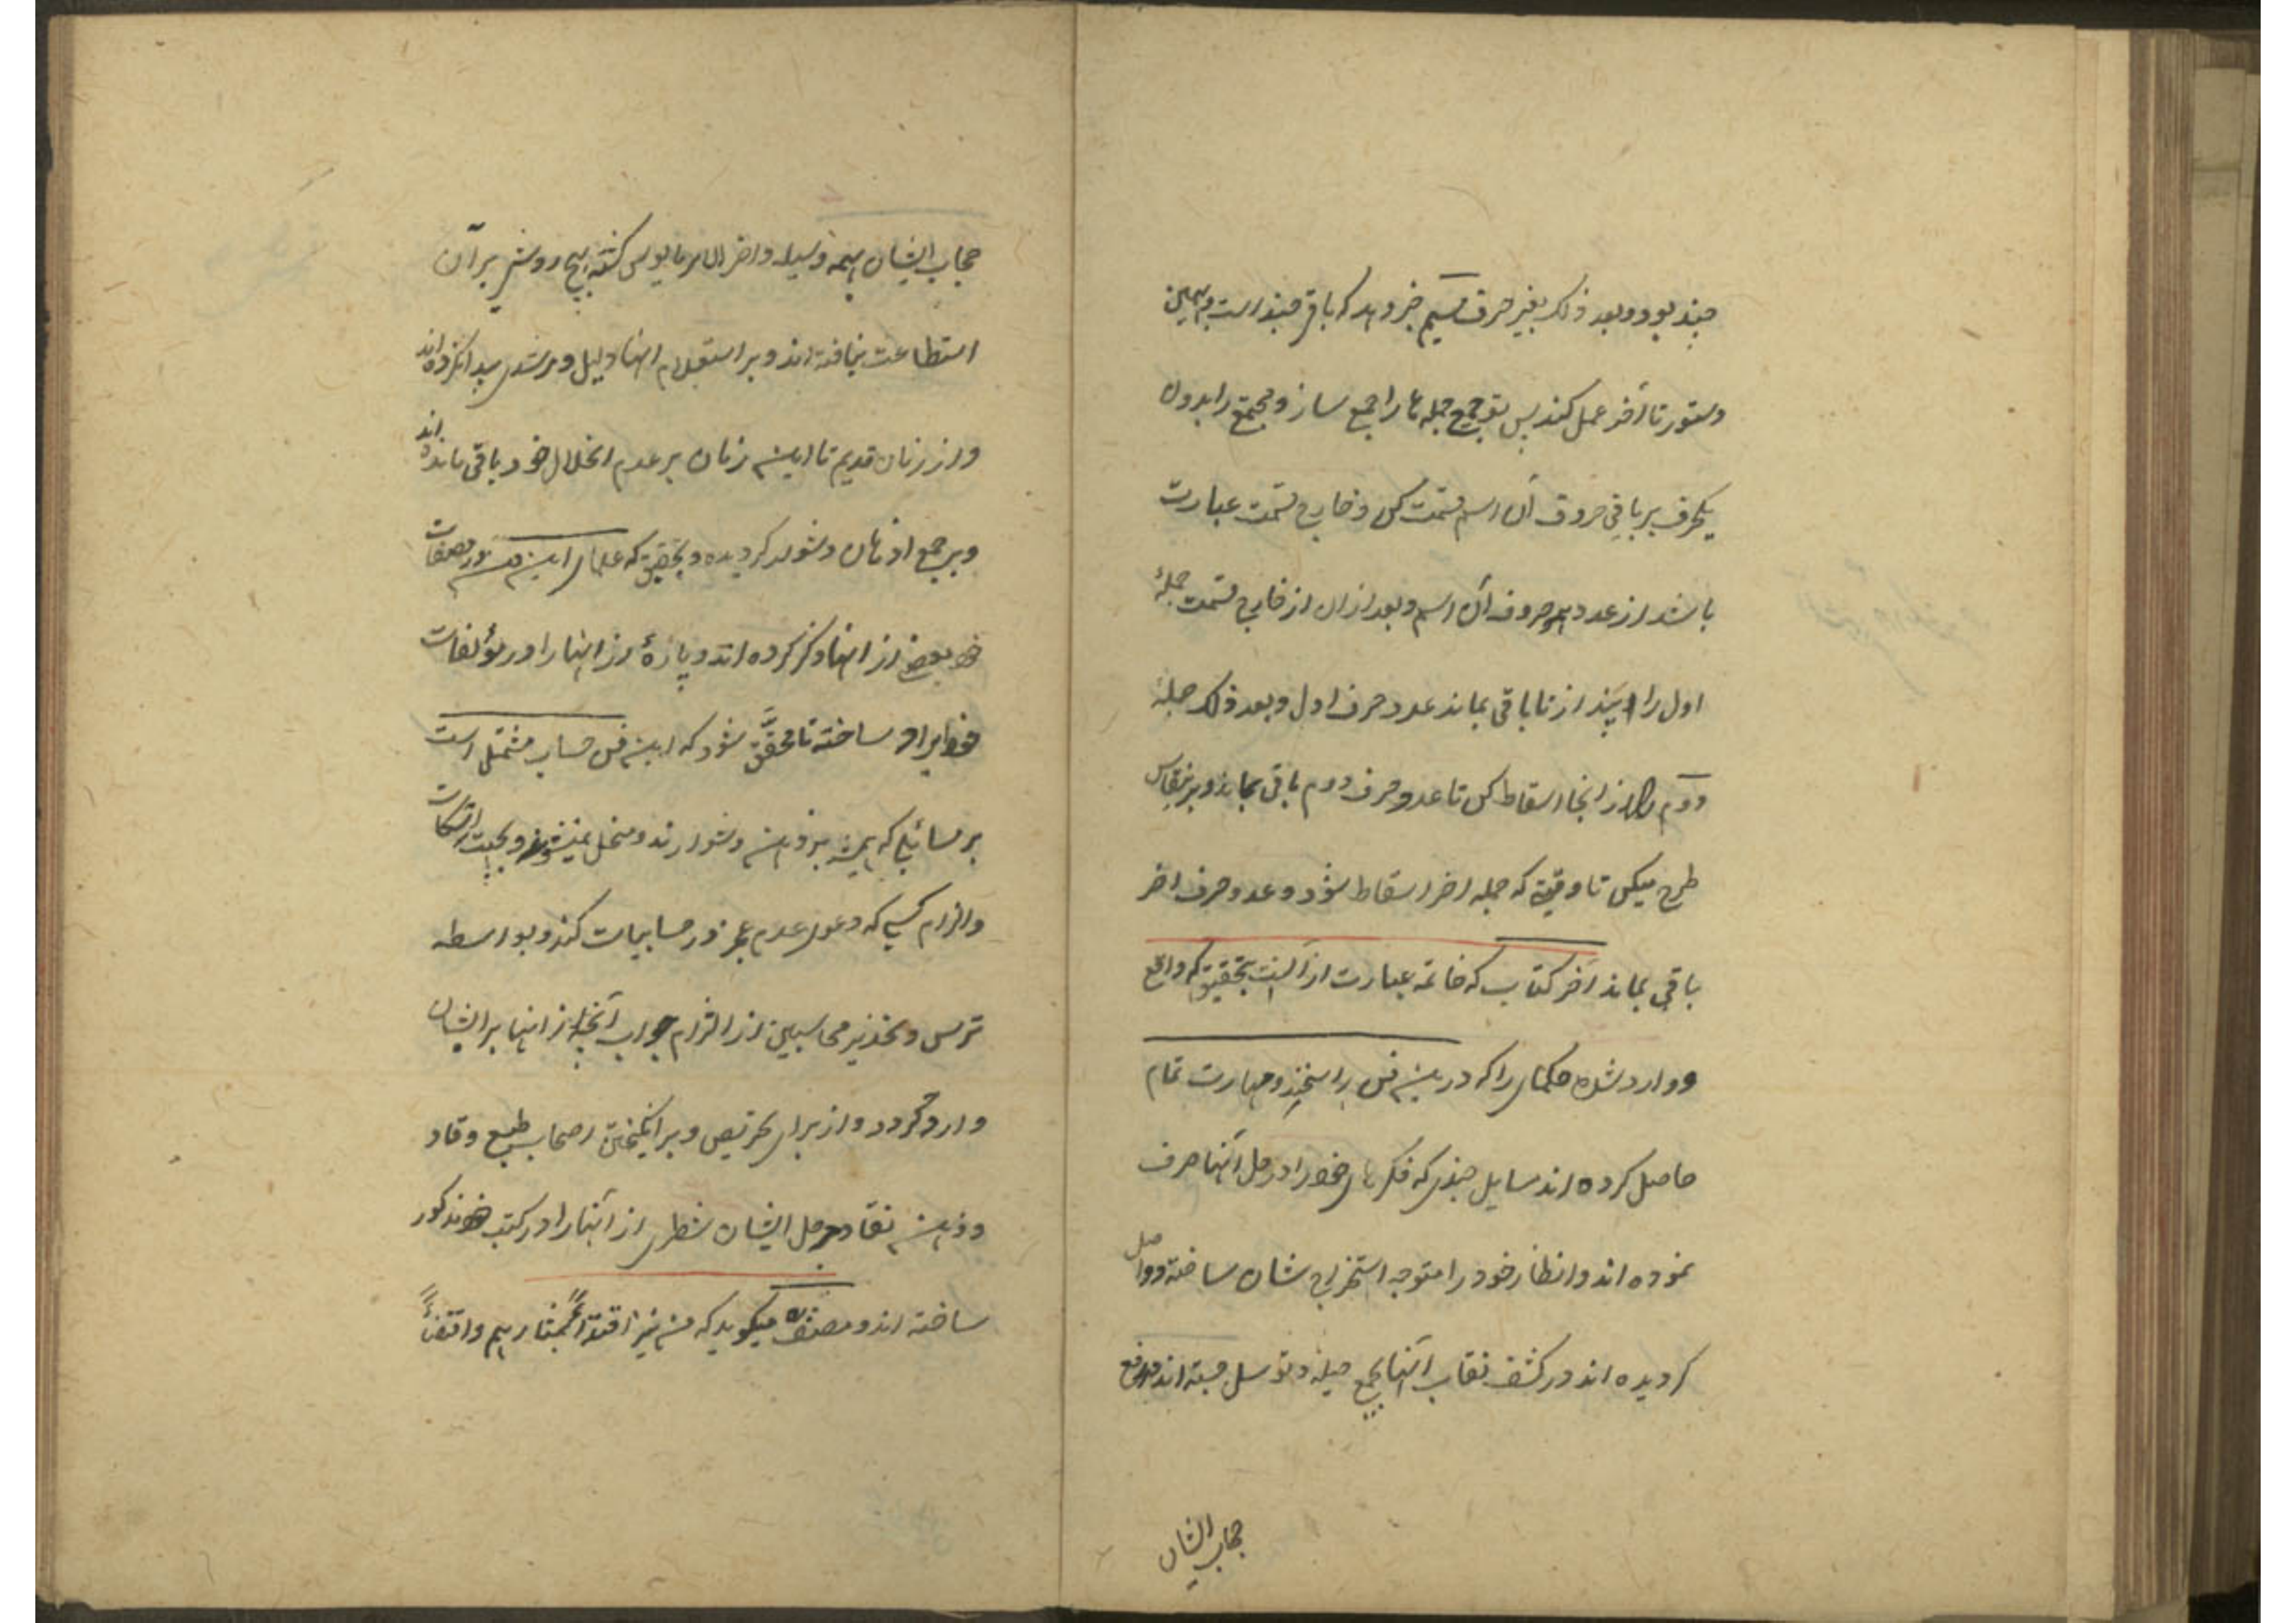 چند بود و بعد ذلک بغیر حرف سیم خبر دهد که باقی چند است بهمین
دستور تا آخر عمل کند پس تو جمیع جمله‌ها را جمع ساز و مجتمع را بدون
یکحرف بر باقی حروف آن اسم قسمت کن و خارج قسمت عبارت
باشد از عدد همه حروف آن اسم و بعد ازان از خارج قسمت جملهٔ
اول را بینداز تا باقی بماند عدد حرف اول و بعد ذلک جملهٔ
دوم را از انجا اسقاط کن تا عدد حرف دوم باقی بماند و برینقیاس
طرح میکن تا وقتیکه جمله اخر اسقاط شود و عدد حرف اخر
باقی بماند آخر کتاب که خاتمه عبارت ازآنست بتحقیق که واقع
و وارد شده حکمای را که درین فن راسخند و مهارت تمام
حاصل کرده اند مسایل چندی که فکرهای خود را در حل آنها صرف
نموده اند و انظار خود را متوجه استخراج شان ساخته و واصل
کردیده اند در کشف نقاب آنها بجمیع حیله و توسل جسته اند در رفع
حجاب ایشان
حجاب ایشان بهمه وسیله و اخر الامر مایوس کشته بهیچ روشی بر آن
استطاعت نیافته اند و بر استعلام انها دلیل و مرشدی پیدا نکرده اند
و از زمان قدیم تا این زمان بر عدم انحلال خود باقی مانده اند
و بر جمیع اذهان دشوار کردیده و بتحقیق که علمای این فن در مصنفات
خود بعضی از انها ذکر کرده اند و پارهٔ از انها را در مؤلفات
خود ایراد ساخته تا محقَّق شود که این فن حساب مشتمل است
بر مسائلی که همیشه بر ذهن دشوارند و منحل نمیشوند و بجهت اسکات
و الزام کسی که دعوی عدم عجز در حسابیات کند و بواسطه
ترس و تحذیر محاسبین از التزام جواب آنچه از انها بر ایشان
وارد کردد و از برای تحریص و بر انکیختن اصحاب طبع وقاد
و ذهن نقاد بر حل ایشان شطری از آنها را در کتب خود مذکور
ساخته اند و مصنف میکوید که من نیز اقتداءً بمنارهم و اقتفاءً